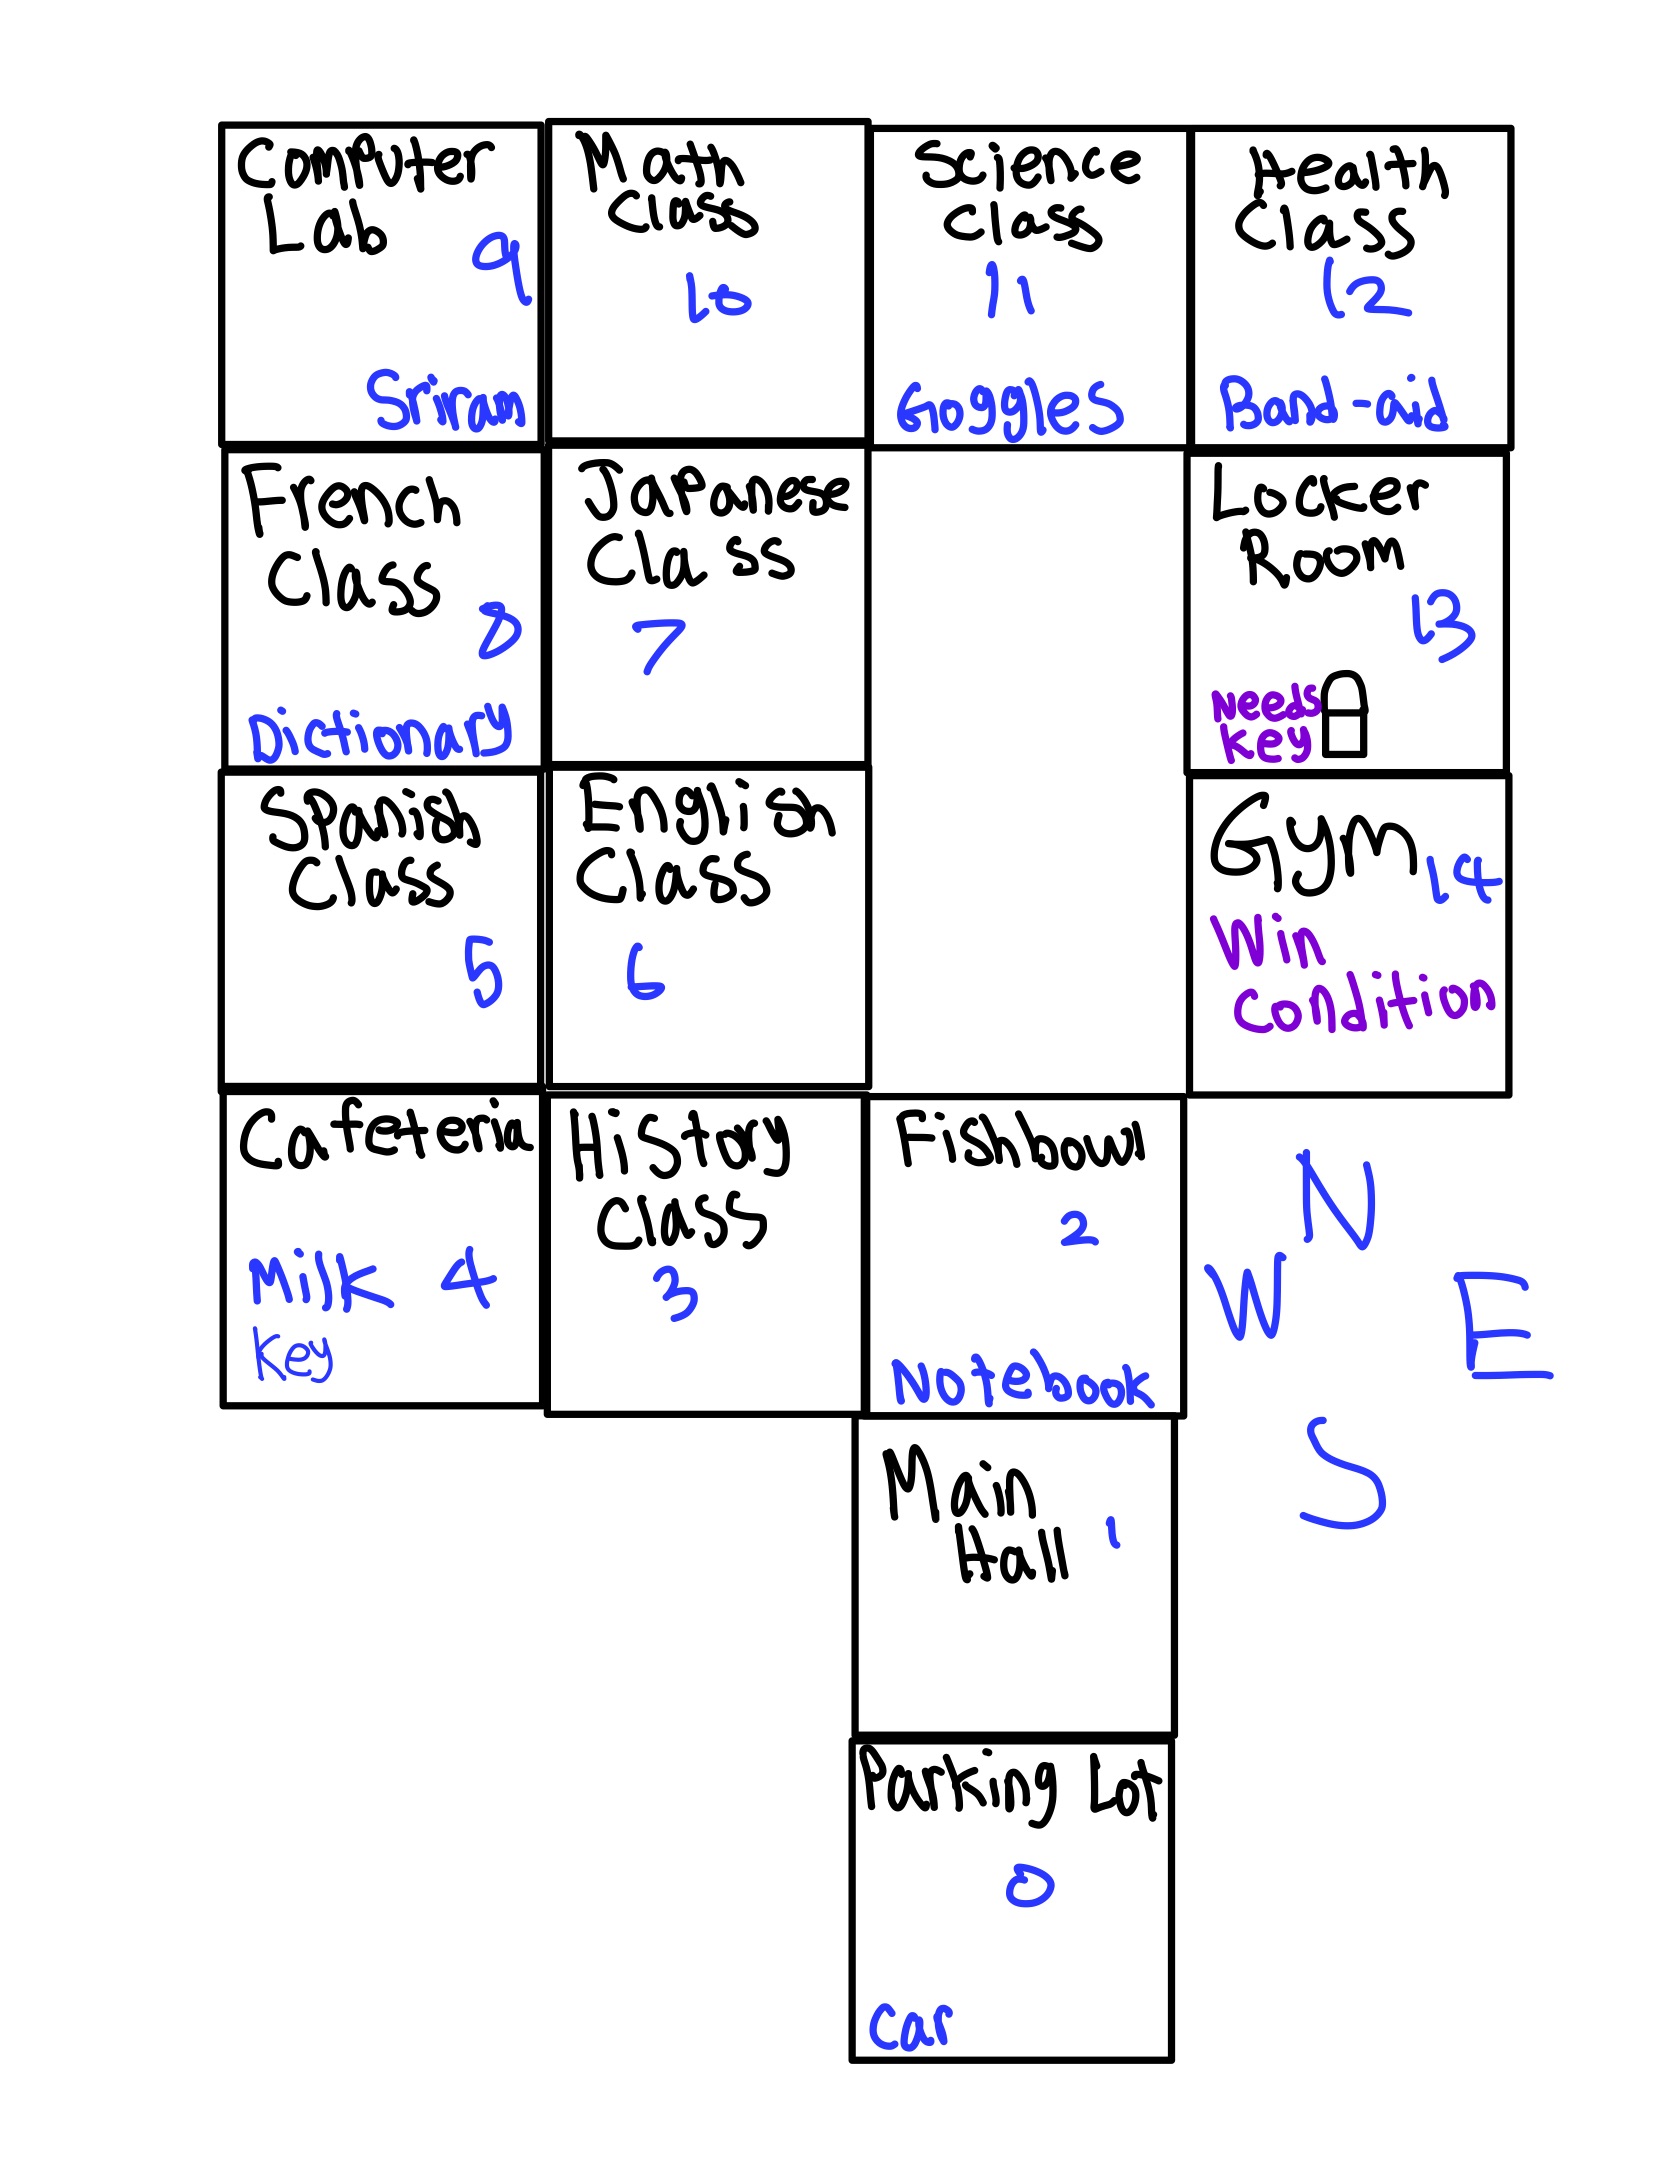 Computer
Lab
9
Sriram
Math
Class
10
Science
Class
11
Goggles
Health
Class
12
Band-aid
French
Class
8
Dictionary
Japanese
Class
7
Locker
Room
13
Needs
Key
Spanish
Class
5
English
Class
6
Gym 14
Win
Condition
Cafeteria
Milk 4
Key
History
Class
3
Fishbowl
2
Notebook
N
W
E
S
Main
Hall 1
Parking Lot
0
Car